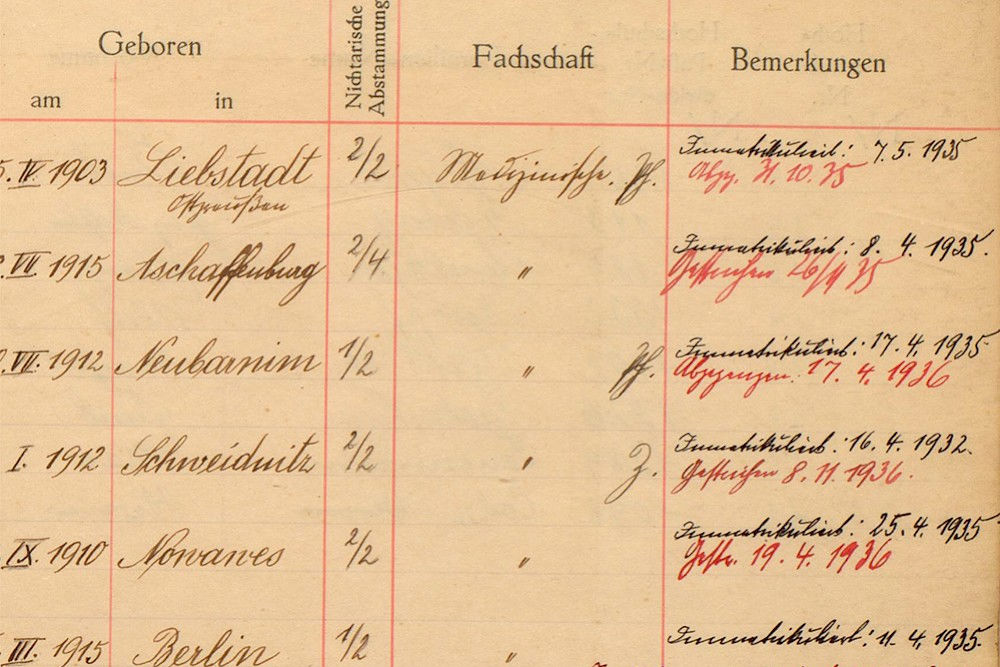 Geboren
am
in
Nichtarische
Abstammung
Fachschaft
Bemerkungen
IV. 1903 Liebstadt 2/2 Medizinische. Immatrikuliert: 7.5.1935
Ostpreußen Abg. 31.10.35
VII. 1915 Aschaffenburg 2/4 " Immatrikuliert: 8.4.1935.
Gestrichen 35
VII. 1912 Neubarnim 1/2 " Immatrikuliert: 17.4.1935
Abgegangen. 17.4.1936
I. 1912 Schweidnitz 2/2 " Z. Immatrikuliert: 16.4.1932.
Gestrichen 8.11.1936.
IX. 1910 Nowawes 2/2 " Immatrikuliert: 25.4.1935
Gestr. 19.4.1936
III. 1915 Berlin 1/2 " Immatrikuliert: 11.4.1935.